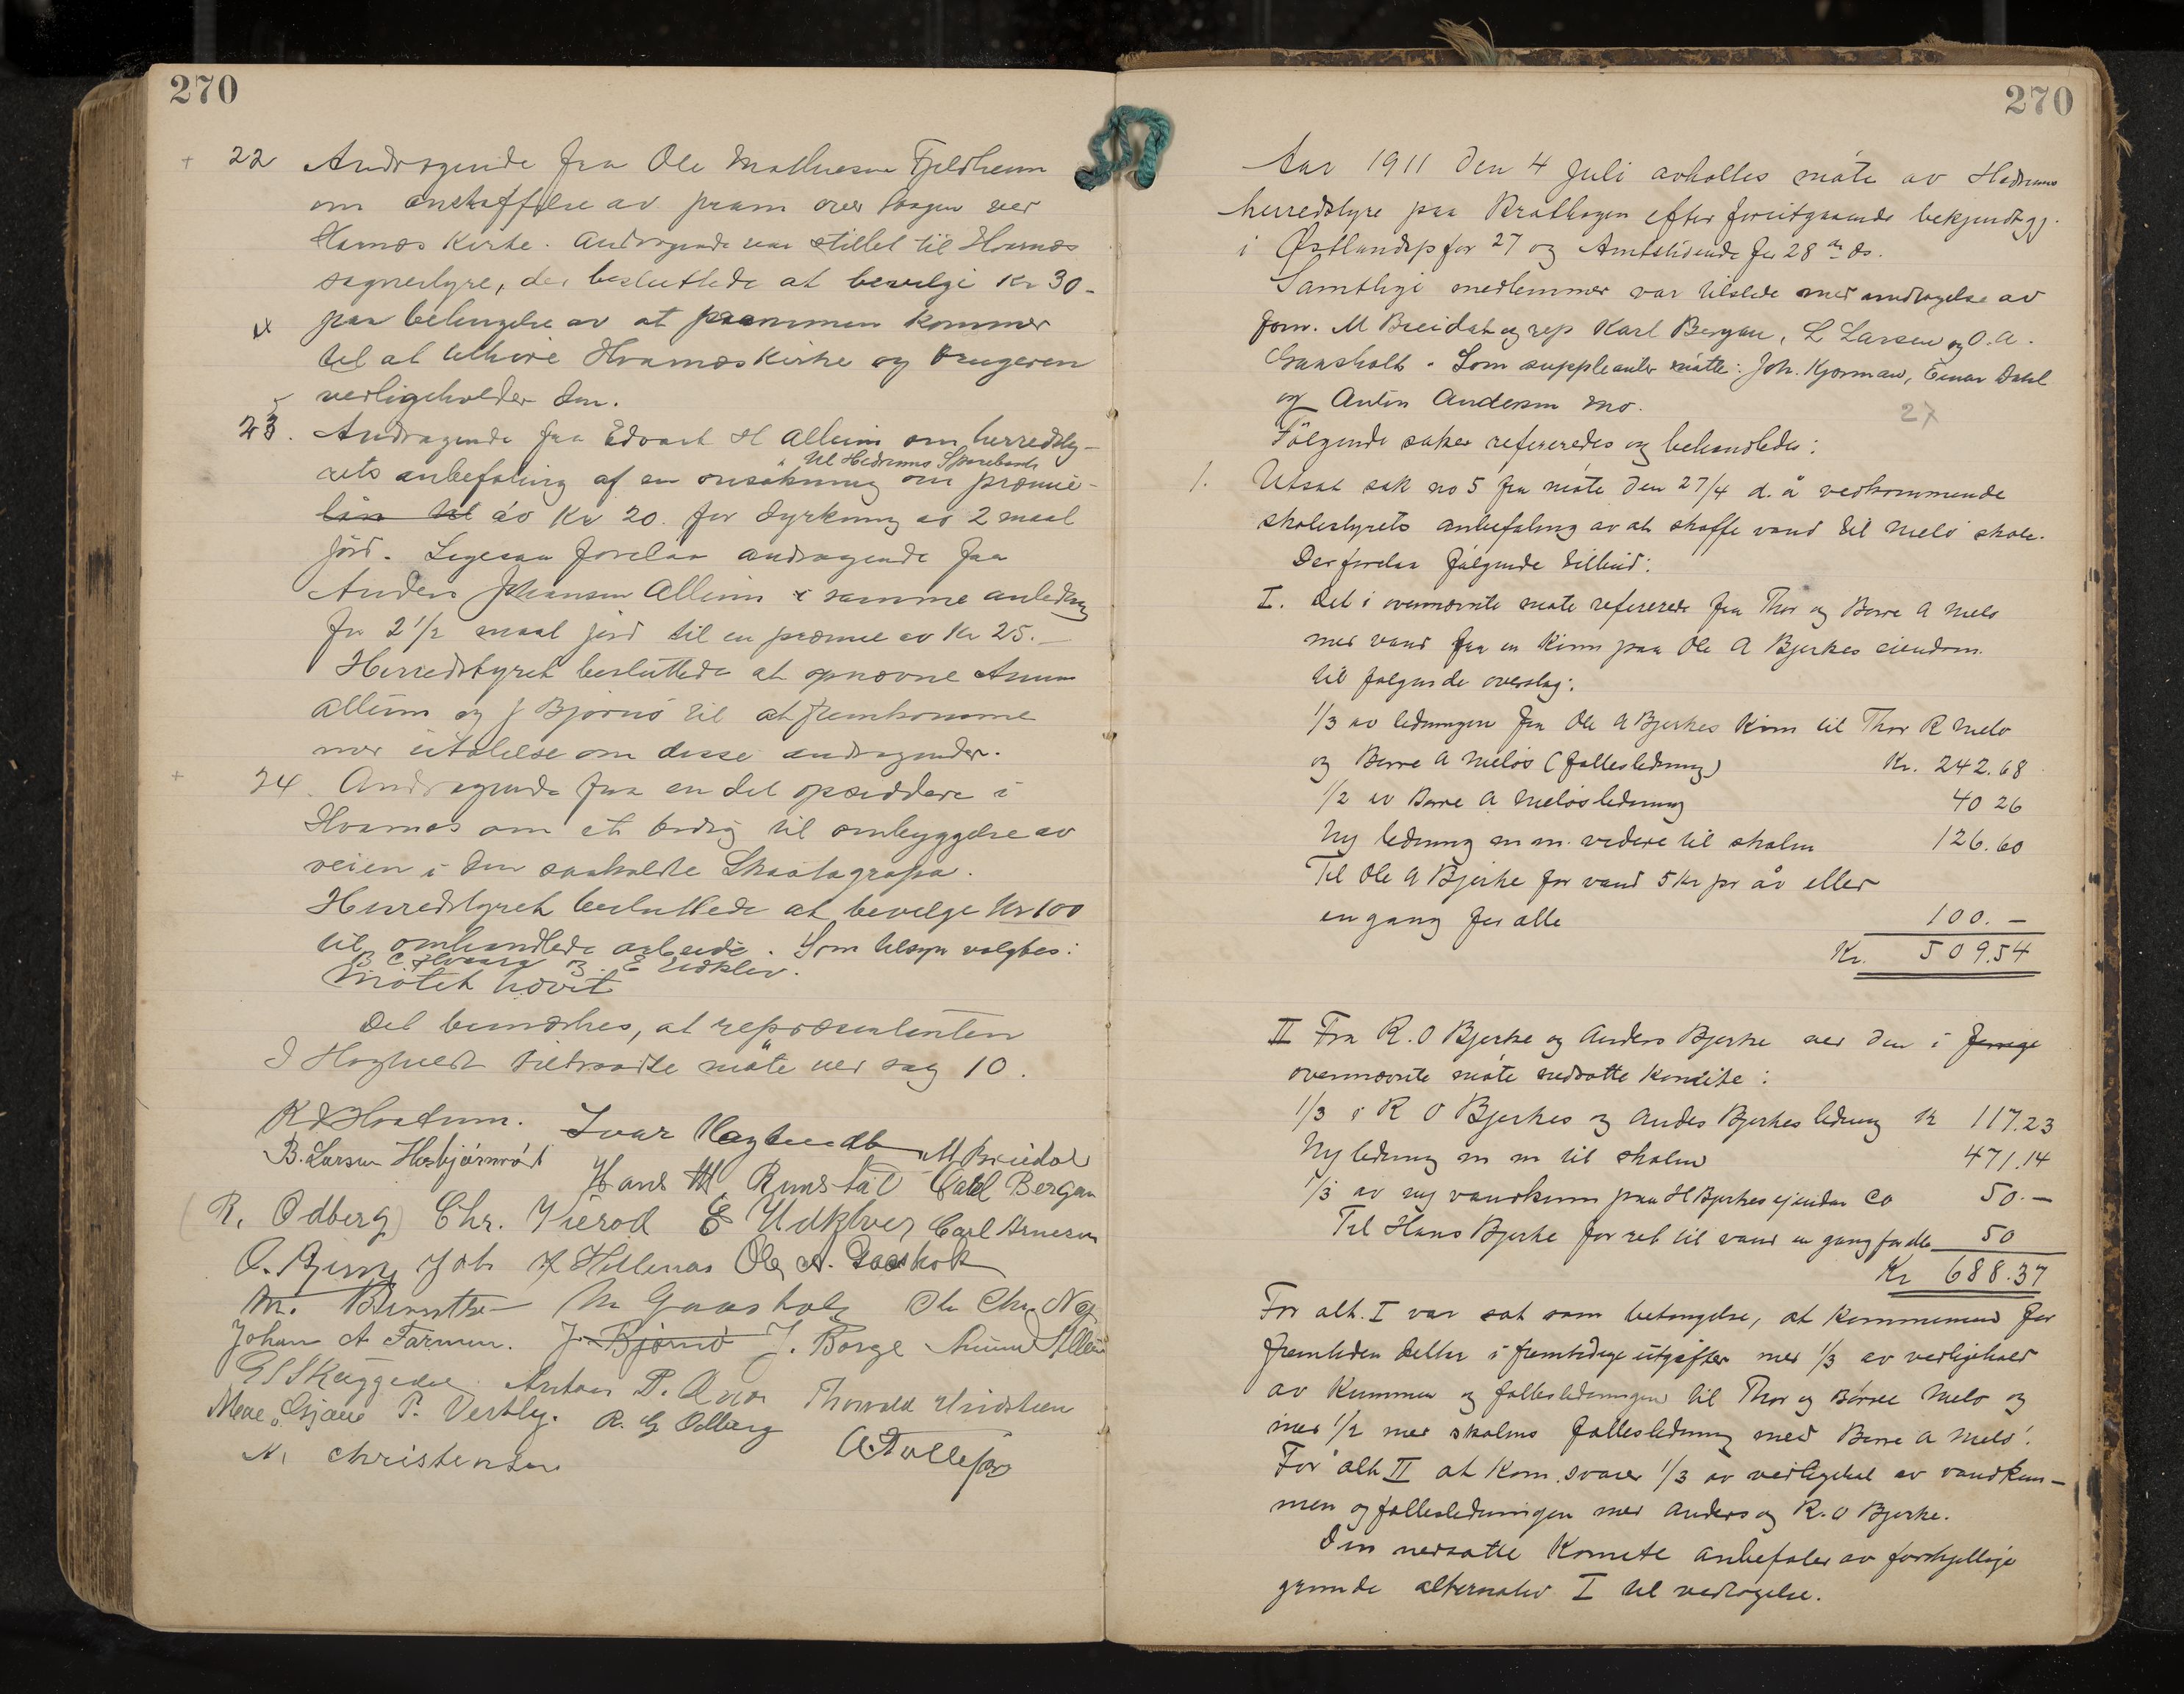 270
22 Andragende fra Ole Mathiesen Fjeldheim
om anskaffelse av pram over Laagen ved
Hvarnæs Kirke. Andragende var stillet til Hvarnæs
sognestyre, der besluttede at bevilge Kr 30.-
paa betingelse av at prammen kommer
til at tilhøre Hvarnæs Kirke og brugeren
vedligeholder den.
23. Andragende fra Edvart H Alleim om herredsty-
til Hedrums Sparebank
rets anbefaling af en ansøkning om præmie-
lån til av Kr 20. for dyrkning av 2 maal
jord. Ligesaa forelaa andragende fra
Anders Johansen Alleim i samme anledning
for 2 1/2 maal jord til en præmie av Kr 25.-
Herredstyret besluttede at opnævne Anund
Alleim og J Bjørnø til at fremkomme
med uttalelse om disse andragender.
24. Andragende fra en del opsiddere i
Hvarnes om et bidrag til ombyggelse av
veien i den saakaldte Skaatagrapa.
Herredstyret besluttede at bevilge Kr 100
til omhandlede arbeide. Som tilsyn valgtes:
B C Hvaara og E Udklev.
Møtet hævet
Det bemerkes, at repræsentanten
I Hagtvedt tiltraadte møte ved sag 10.
K Hvatum. Ivar Hagtvedt M Breidal
B. Larsen Hæsbjørnrød Hans M. Rimstad Carl Bergan
R. Odberg Chr. Vierød E Udklev Carl Arnesen
O. Bjerke Joh H Hellenæs Ole A. Gaasholt
M. Berntsen M Gaasholt Ole Chr. Næs
Johan A Farmen. J Bjørnø J. Borge Anund Alleim
G S Skuggedal Anton P. Anvik Thorvald Hvidsteen
P. Vestby. R. G Odberg
A. Christensen A Tollefsen
270
Aar 1911 den 4 Juli avholtes møte av Hedrums
herredstyre paa Bratthagen efter forutgaaende bekjendtgj.
i Østlandsp for 27 og Amtstidende for 28 ds.
Samtlige medlemmer var tilstede med undtagelse av
form. M Breidal og rep Karl Bergan, L Larsen og O. A.
Gaasholt. Som suppleanter møtte: Joh. Kjørmaw, Einar Dahl
og Anton Andersen Mo.
27
Følgende saker refereredes og behandledes:
1. Utsat sak no 5 fra møte den 27/4 d. å vedkommende
skolestyrets anbefaling av at skaffe vand til Melø skole.
Der forelaa følgende tilbud:
I. Det i ovennævnte møte refererede fra Thor og Børre A Melø
med vand fra en Kum paa Ole A Bjerkes eiendom
til følgende overslag:
1/3 av ledningen fra Ole A Bjerkes Kum til Thor R Melø
og Børre A Meløs (fællesledning) Kr. 242.68
1/2 av Børre A Meløs ledning 40 26
Ny ledning m m. videre til skolen 126.60
Til Ole A Bjerke for vand 5 Kr pr år eller
en gang for alle 100.-
Kr. 509.54
II Fra R. O Bjerke og Anders Bjerke ved den i forrige
ovennævnte møte nedsatte Komite:
1/3 i R O Bjerkes og Anders Bjerkes ledning Kr 117.23
Ny ledning m m til skolen 471.14
1/3 av ny vandkum paa H Bjerkes ejendom ca 50.-
Til Hans Bjerke for ret til vand en gang for alle 50
Kr 688.37
For alt. I var sat som betingelse, at Kommunen for
fremtiden deltar i fremtidige utgifter med 1/3 av vedligehold
av Kummen og fællesledningen til Thor og Børre Melø og
med 1/2 med skolens fællesledning med Børre A Melø.
For alt II at Kom. svarer 1/3 av vedligehol av vandkum-
men og fællesledningen med Anders og R. O Bjerke.
Den nedsatte Komite anbefaler av forskjellige
grunde alternativ I til vedtagelse.